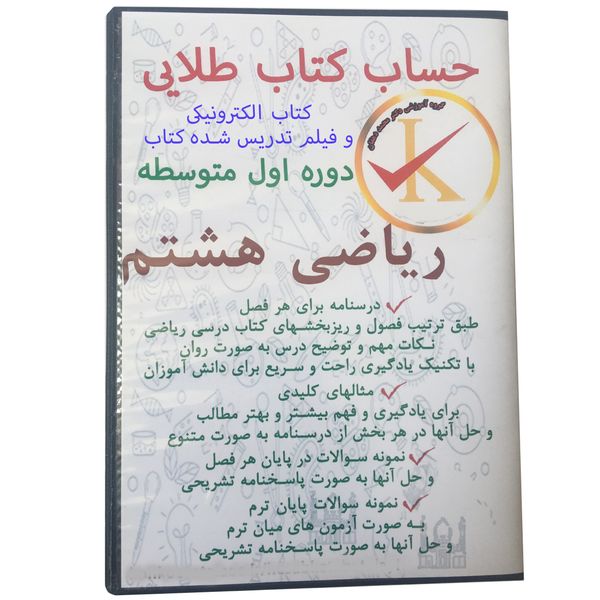 حساب کتاب طلایی
کتاب الکترونیکی
و فیلم تدریس شده کتاب
دوره اول متوسطه
گروه آموزشی دکتر محمد
K
ریاضی هشتم
درسنامه برای هر فصل
طبق ترتیب فصول و ریزبخشهای کتاب درسی ریاضی
نکات مهم و توضیح درس به صورت روان
با تکنیک یادگیری راحت و سریع برای دانش آموزان
مثالهای کلیدی
برای یادگیری و فهم بیشتر و بهتر مطالب
و حل آنها در هر بخش از درسنامه به صورت متنوع
نمونه سوالات در پایان هر فصل
و حل آنها به صورت پاسخنامه تشریحی
نمونه سوالات پایان ترم
به صورت آزمون های میان ترم
و حل آنها به صورت پاسخنامه تشریحی